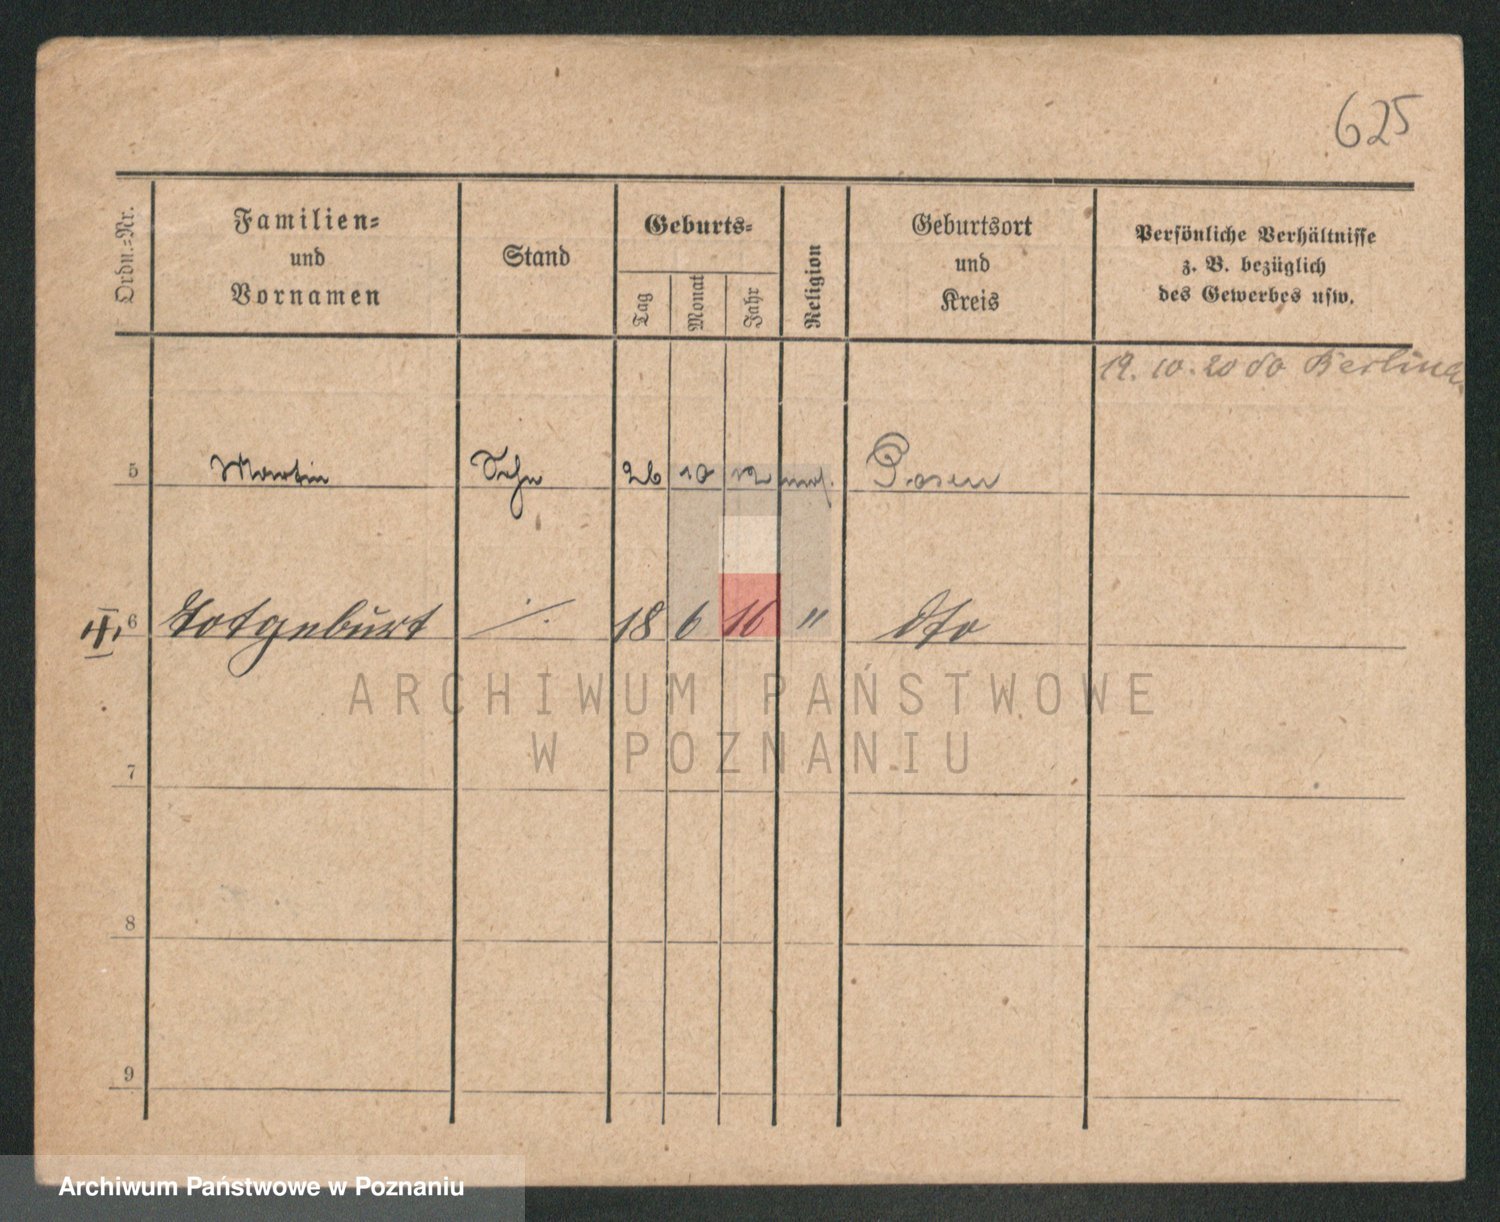 625
Ordn.=Nr.
Familien=
und
Vornamen
Stand
Geburts=
Tag
Monat
Jahr
Religion
Geburtsort
und
Kreis
Persönliche Verhältnisse
z. B. bezüglich
des Gewerbes usw.
19. 10. 20
5 Martin Sohn 26 10 12 mos. Posen
6 Totgeburt ./. 18 6 16 " dto
ARCHIWUM PAŃSTWOWE
W POZNANIU
7
8
9
Archiwum Państwowe w Poznaniu